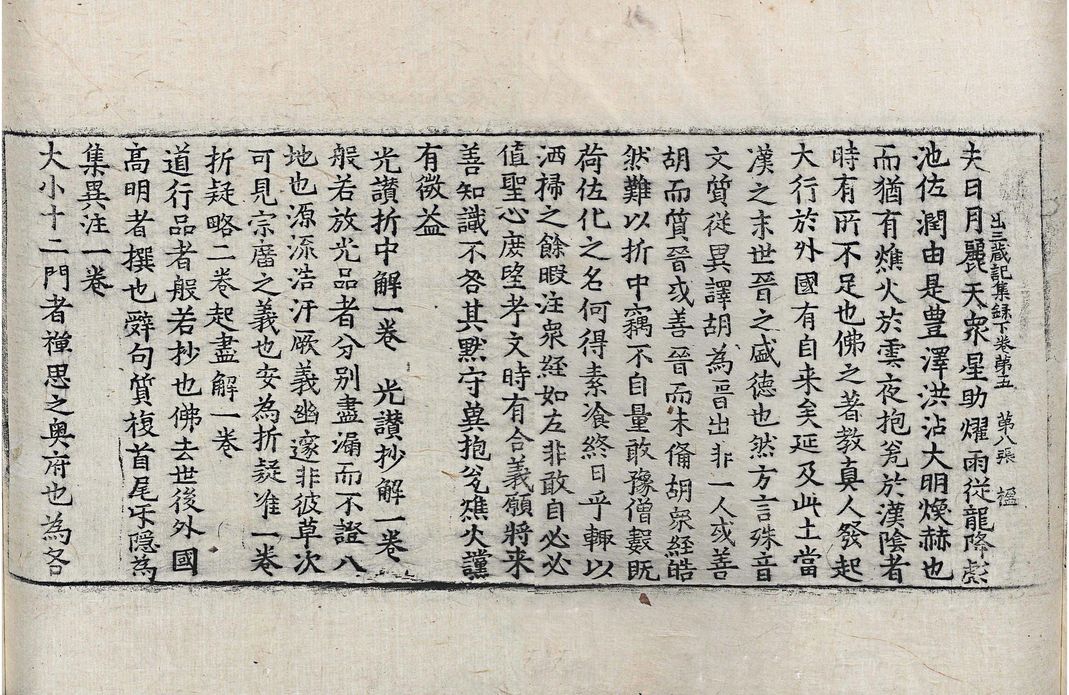 出三藏記集録下卷第五　第八張　楹
夫日月麗天衆星助耀雨從龍降滮
池佐潤由是豊澤洪沾大明煥赫也
而猶有燋火於雲夜抱瓮於漢陰者
時有所不足也佛之著教真人發起
大行於外國有自来矣延及此土當
漢之末世晉之盛德也然方言殊音
文質從異譯胡為晉出非一人或善
胡而質晉或善晉而未備胡衆経皓
然難以折中竊不自量敢豫僧數既
荷佐化之名何得素飡終日乎輙以
洒掃之餘暇注衆経如左非敢自必必
值聖心庶望考文時有合義願將来
善知識不咎其默守冀抱瓮燋火讜
有微益
光讃折中解一卷　光讃抄解一卷
般若放光品者分別盡漏而不證八
地也源流浩汗厥義幽邃非彼草次
可見宗廕之義也安為折疑准一卷
折疑略二卷起盡解一卷
道行品者般若抄也佛去世後外國
髙明者撰也辭句質複首尾㸦隱為
集異注一卷
大小十二門者禅思之奥府也為各